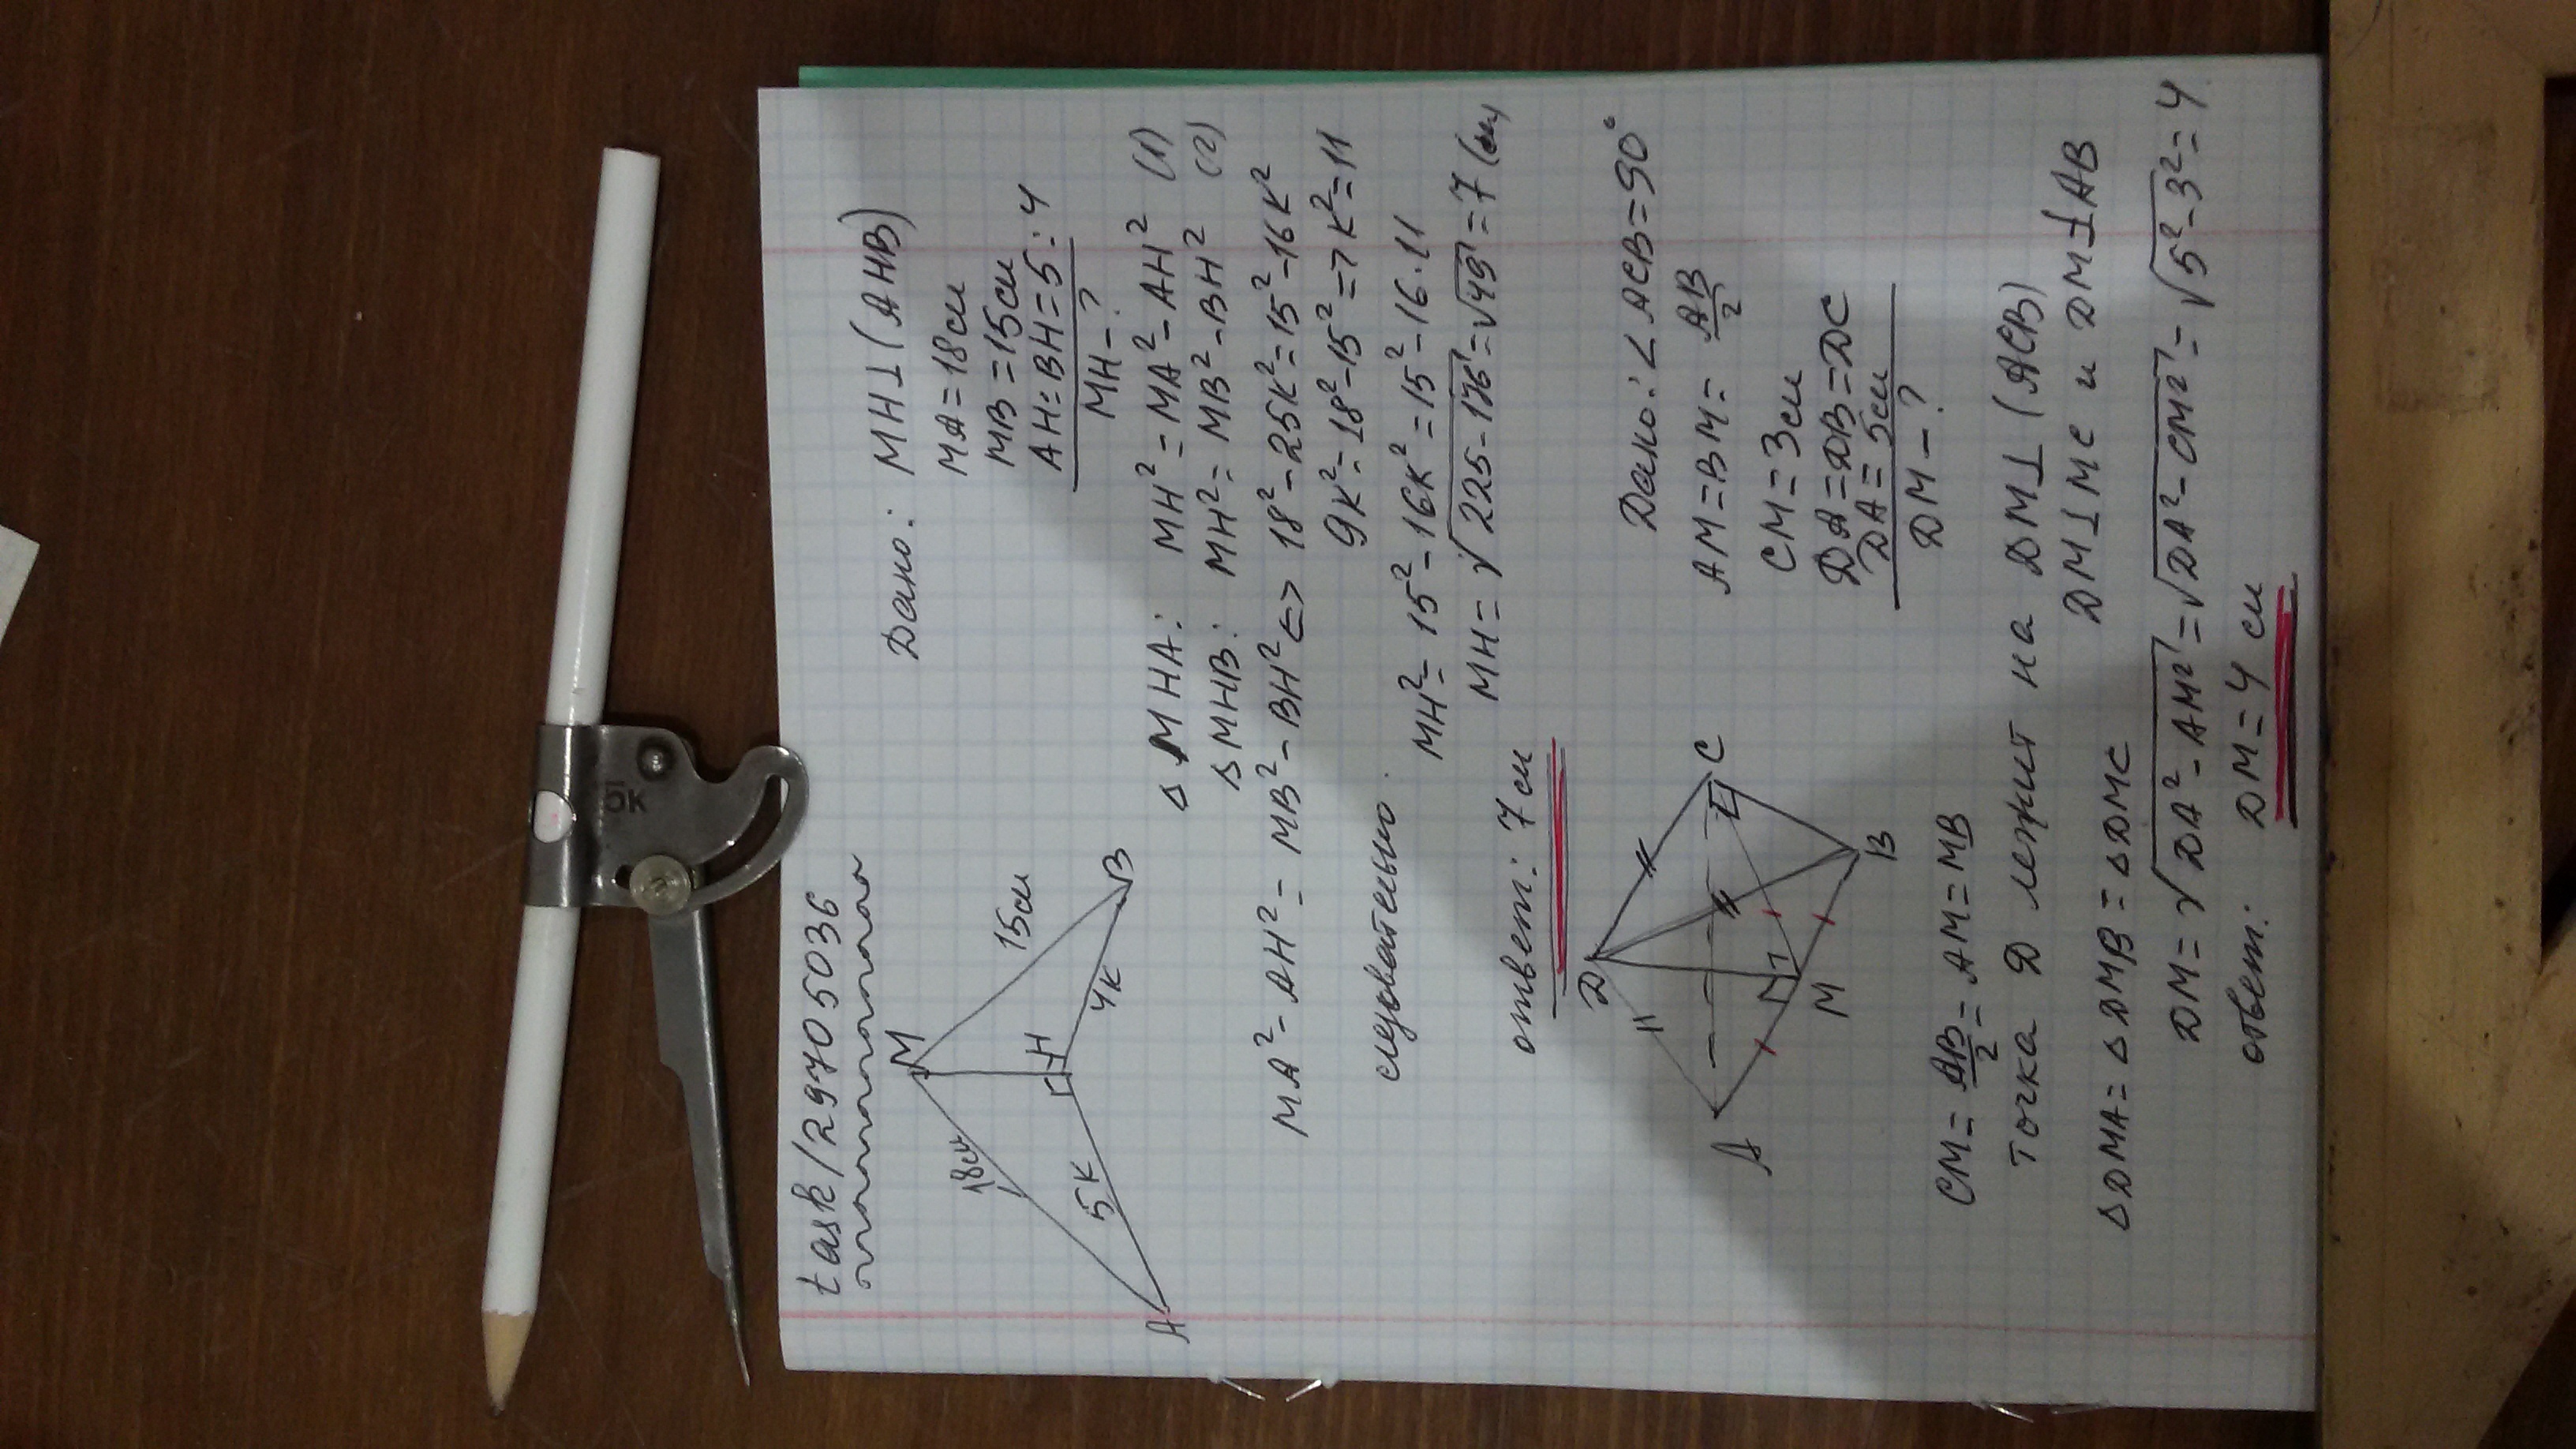 task/29705036
Дано: MH⊥(AHB)
MA=18см
MB=15см
AH:BH=5:4
MH-?
M
18см
15см
H
5к
4к
A
B
△MHA: MH²=MA²-AH² (1)
△MHB: MH²=MB²-BH² (2)
MA²-AH²=MB²-BH²<=>18²-25к²=15²-16к²
9к²=18²-15²=>к²=11
следовательно
MH²=15²-16к²=15²-16·11
MH=√225-176=√49=7(см)
ответ: 7см
Дано: ∠ACB=90°
AM=BM=AB/2
CM=3см
DA=DB=DC
DA=5см
DM-?
D
C
A
M
B
CM=AB/2=AM=MB
точка D лежит на DM⊥(ACB)
DM⊥MC и DM⊥AB
△DMA=△DMB=△DMC
DM=√DA²-AM²=√DA²-CM²=√5²-3²=4
ответ: DM=4 см
5K